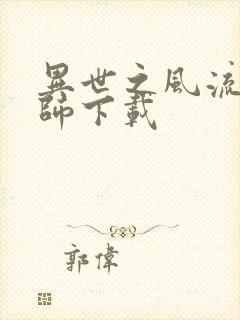 異世之風流
師下載
郭偉